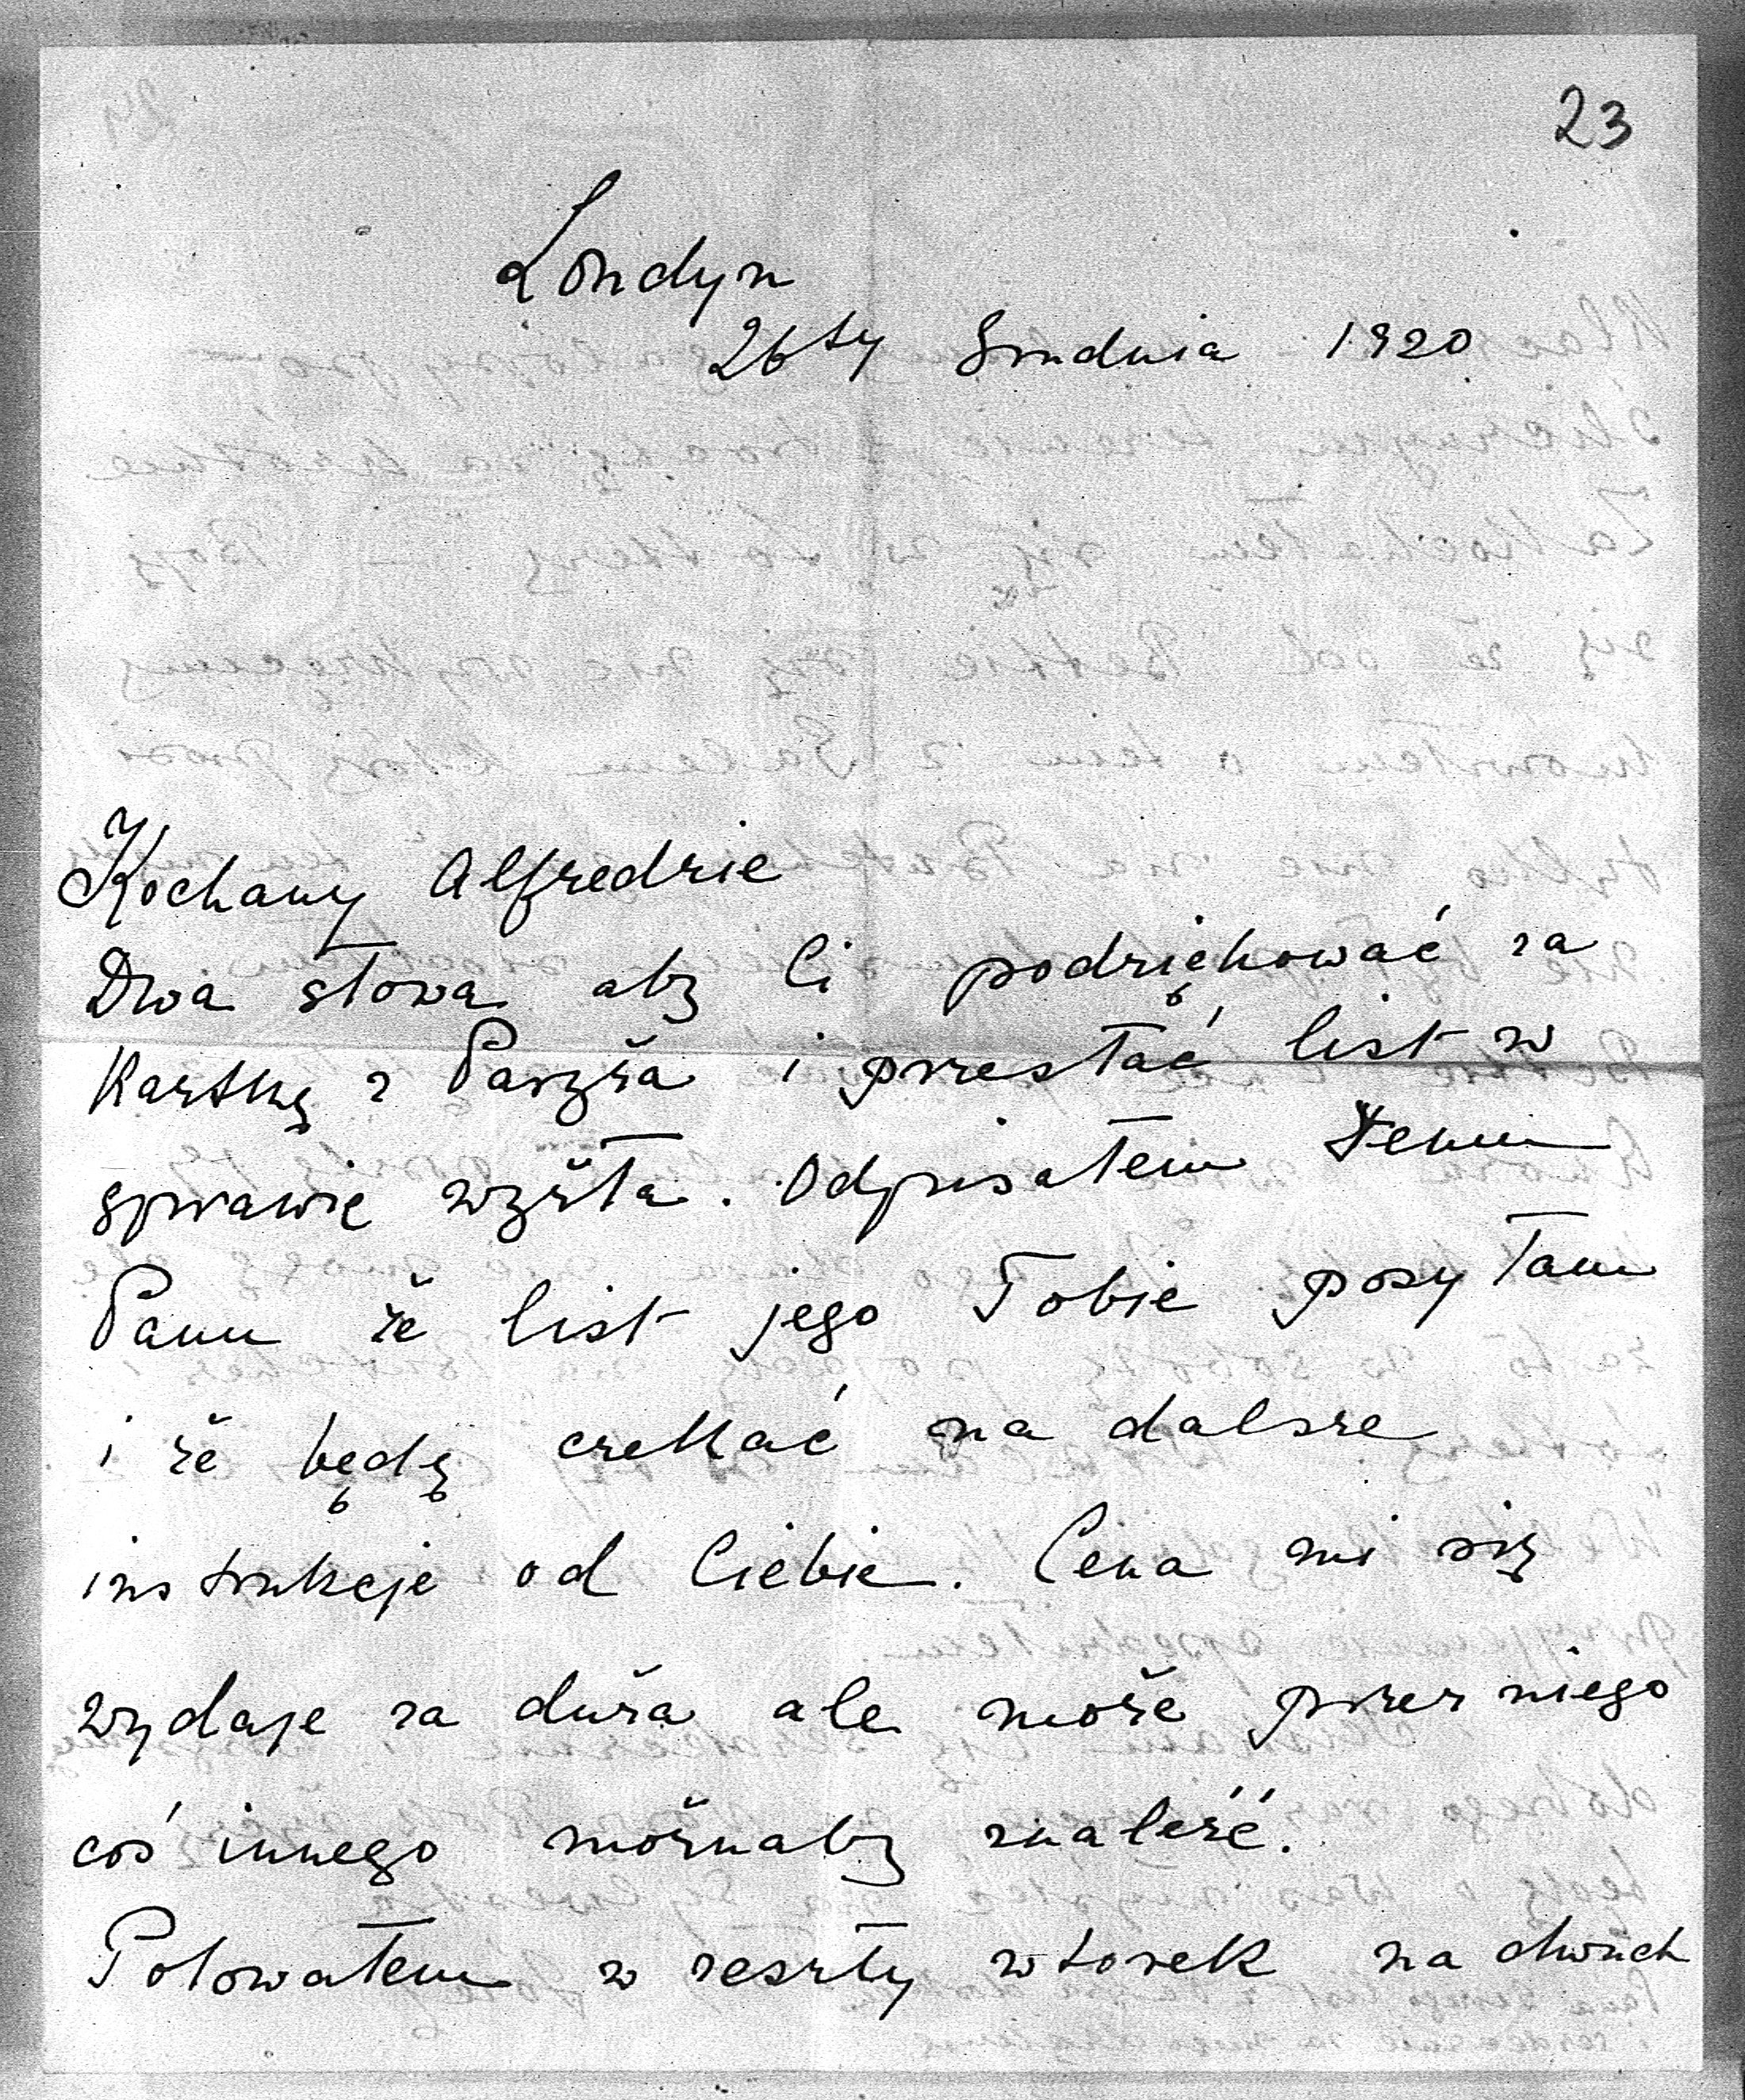 23
Londyn
26ty Grudnia 1920
Kochany Alfredzie
Dwa słowa aby Ci podziękować za
kartkę z Paryża i przesłać list w
sprawie wyżła. Odpisałem temu
Panu że list jego Tobie posyłam
i że będę czekać na dalsze
instrukcje od Ciebie. Cena mi się
wydaje za duża ale może przez niego
coś innego możnaby znaleźć.
Polowałem w zeszły wtorek na dwuch